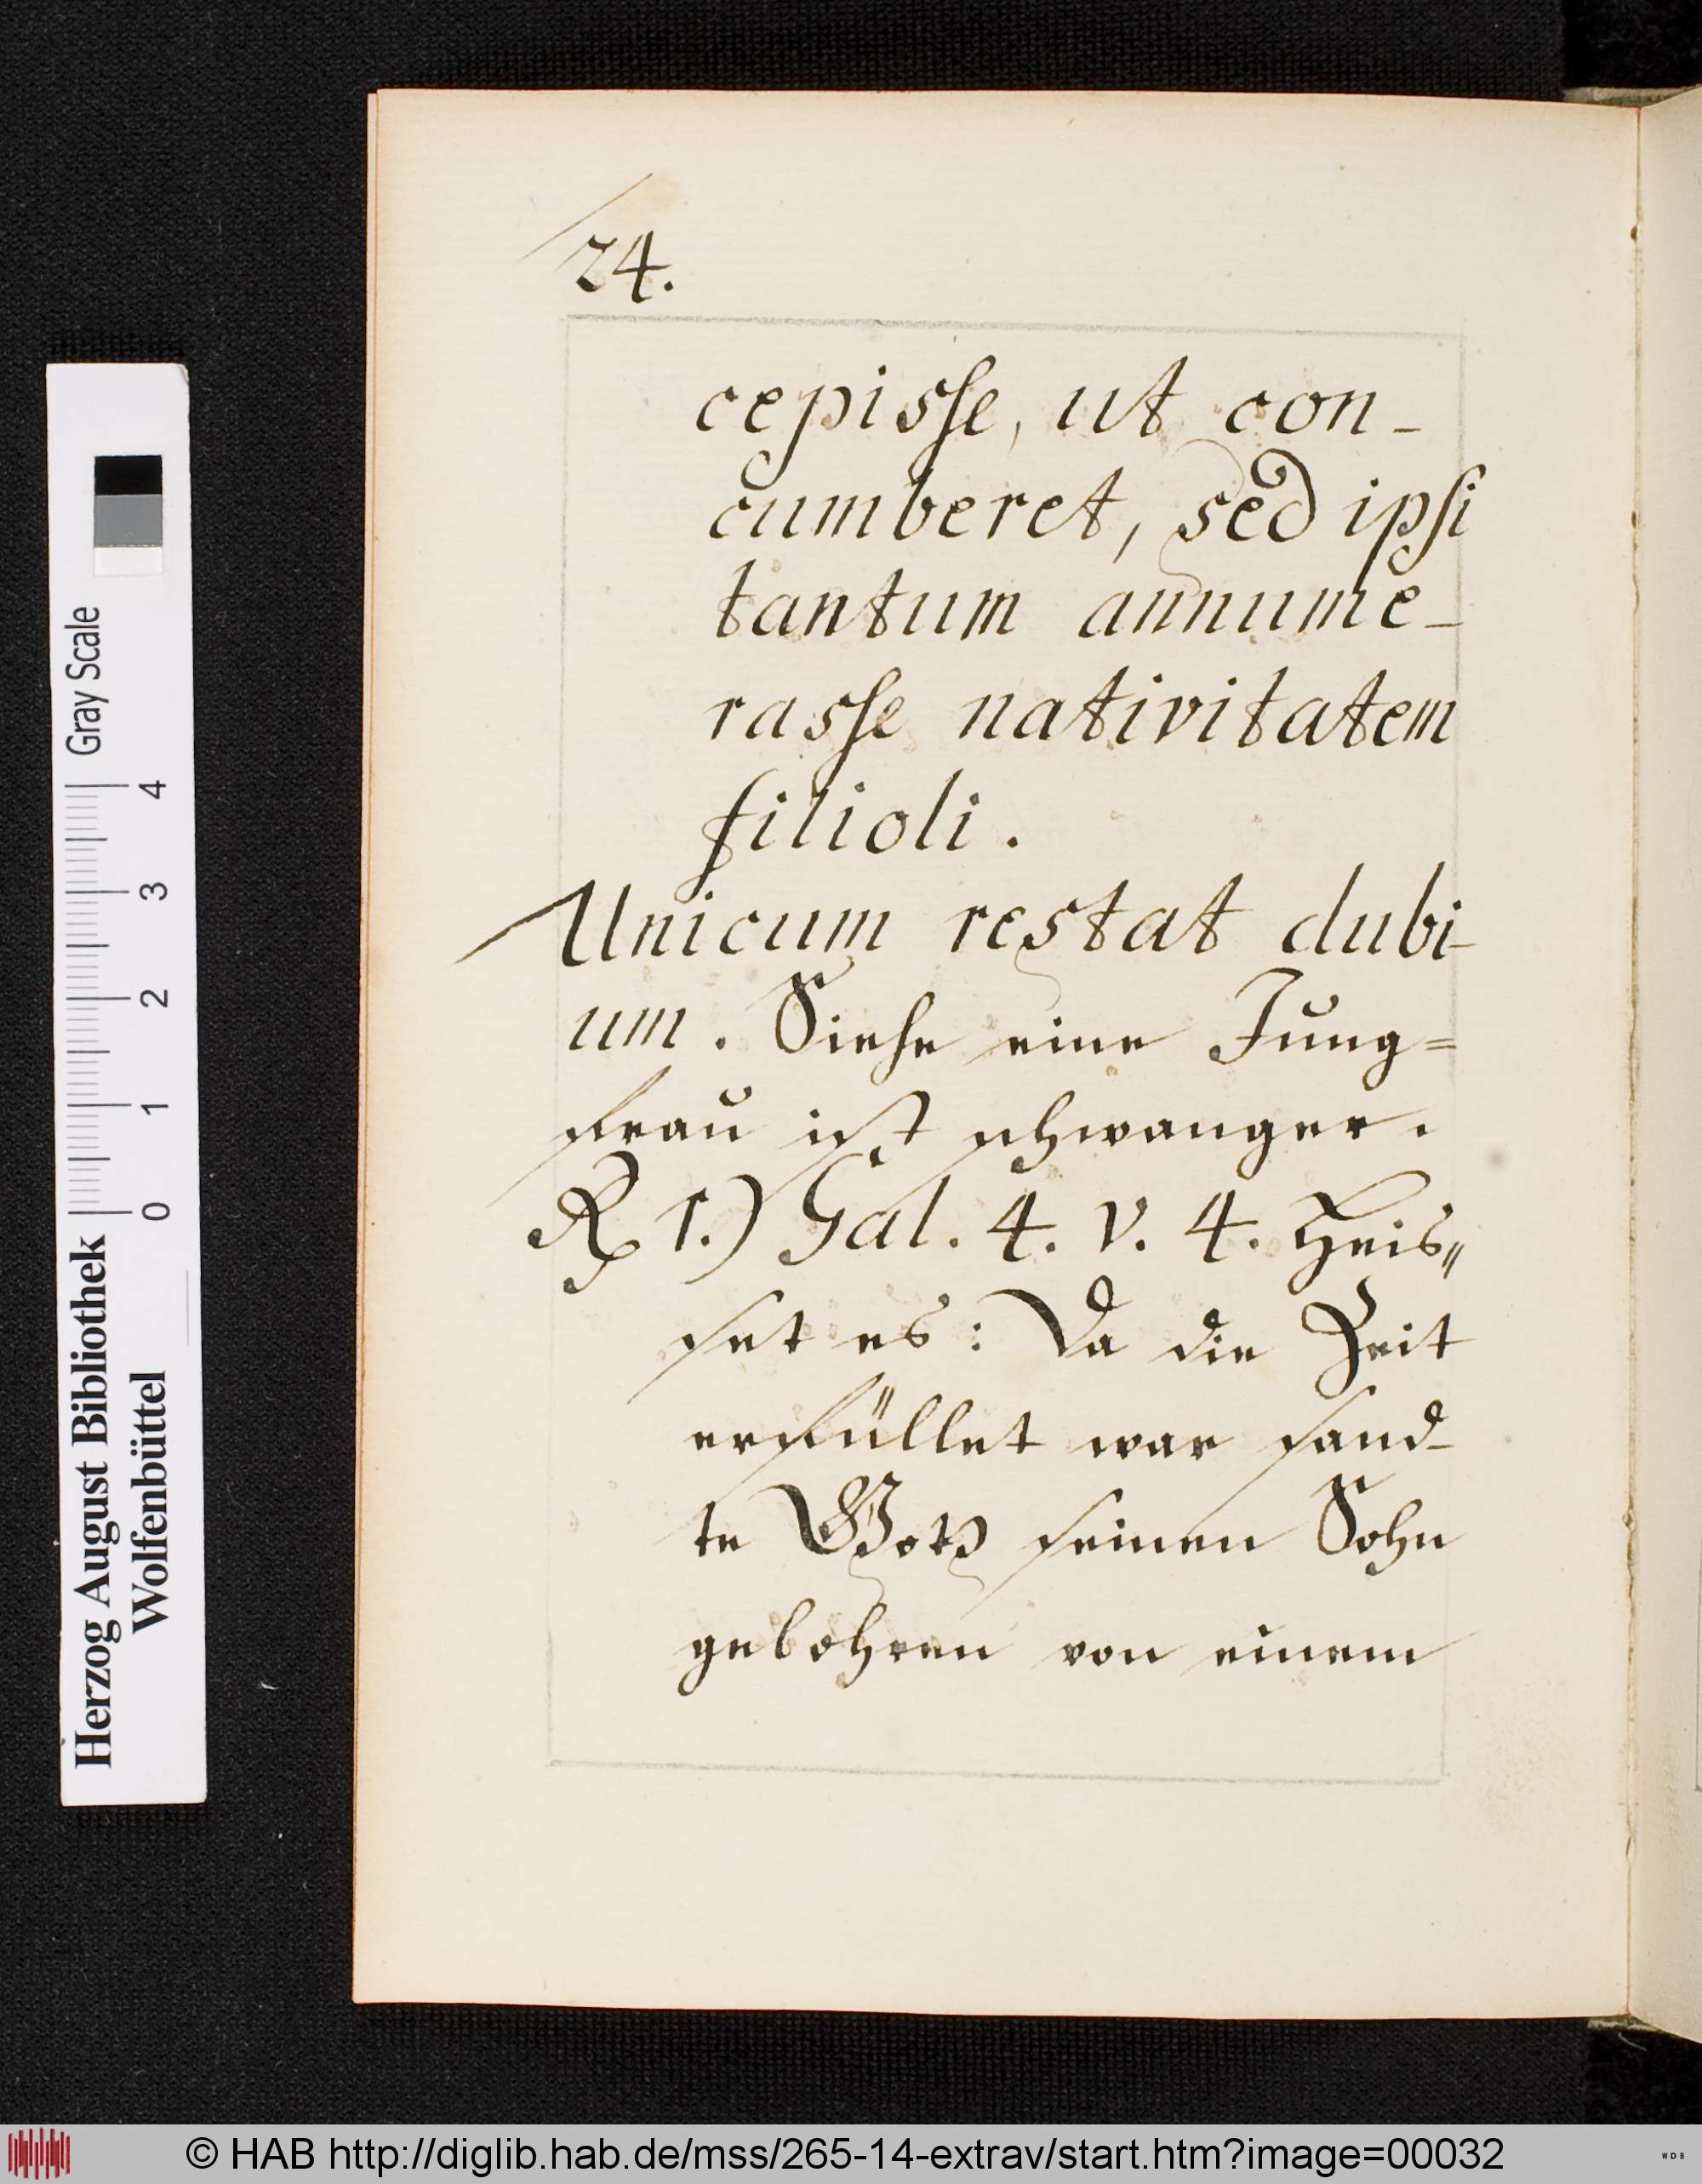 24.
cepisse, ut con-
cumberet, sed ipsi
tantum annume-
rasse nativitatem
filioli.
Unicum restat dubi-
um. Siehe eine Jung=
frau ist schwanger.
R 1.) Gal. 4. v. 4. Heis„
set es: Da die Zeit
erfüllet war sand-
te Gott seinen Sohn
gebohren von einem
Gray Scale
0 1 2 3 4
Herzog August Bibliothek
Wolfenbüttel
© HAB http://diglib.hab.de/mss/265-14-extrav/start.htm?image=00032
WDB